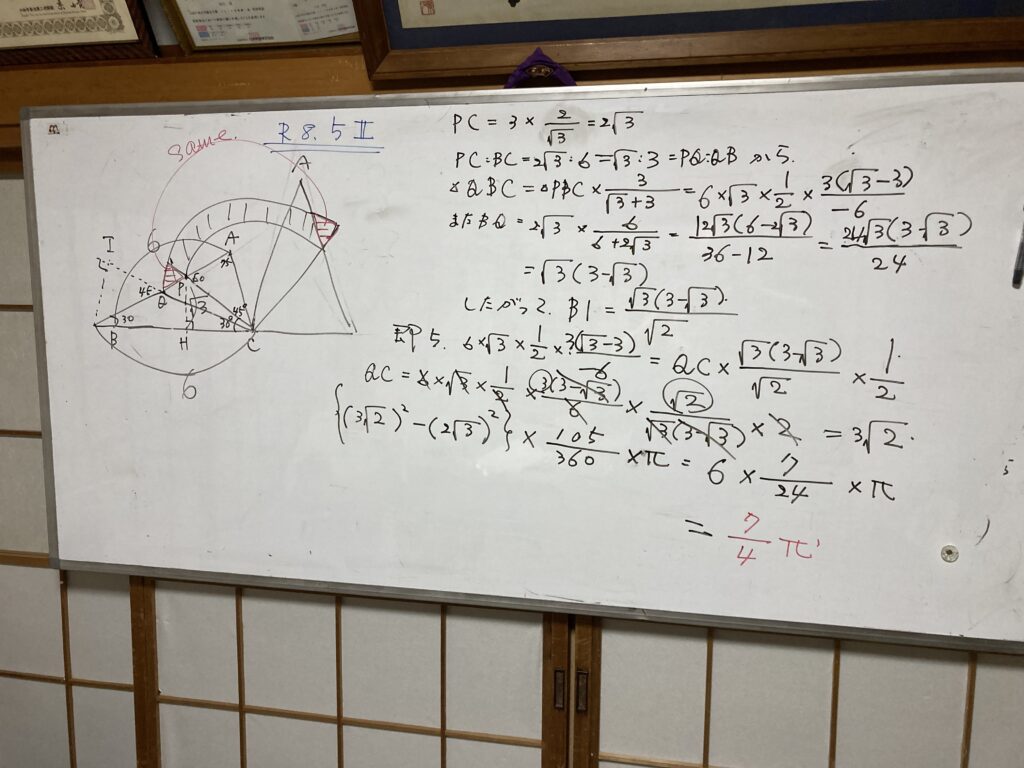 R 8. 5 II
same.
A
I
6
A
75
60
P
45
Q
√3
45°
30
30°
B
H
C
6
PC = 3 × 2/√3 = 2√3
PC:BC = 2√3:6 = √3:3 = PQ:QB から.
△QBC = △PBC × 3/(√3+3) = 6×√3×1/2×3(√3-3)/-6
またBQ = 2√3 × 6/(6+2√3) = 12√3(6-2√3)/(36-12) = 24√3(3-√3)/24
= √3(3-√3)
したがって. BI = √3(3-√3)/√2.
6×√3×1/2×3(√3-3)/-6 = QC × √3(3-√3)/√2 × 1/2
QC = 6×√3×1/2×3(3-√3)/6 × √2/√3(3-√3) × 2 = 3√2.
{(3√2)²-(2√3)²} × 105/360 × π = 6 × 7/24 × π
= 7/4 π